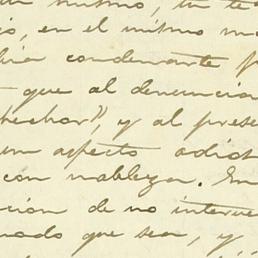 mismo, un te
en el mismo mo
condenarte p
que al denuncia
hechor", y al prese
un aspecto adict
con nobleza. En
ción de no interve
modo que sea, y,